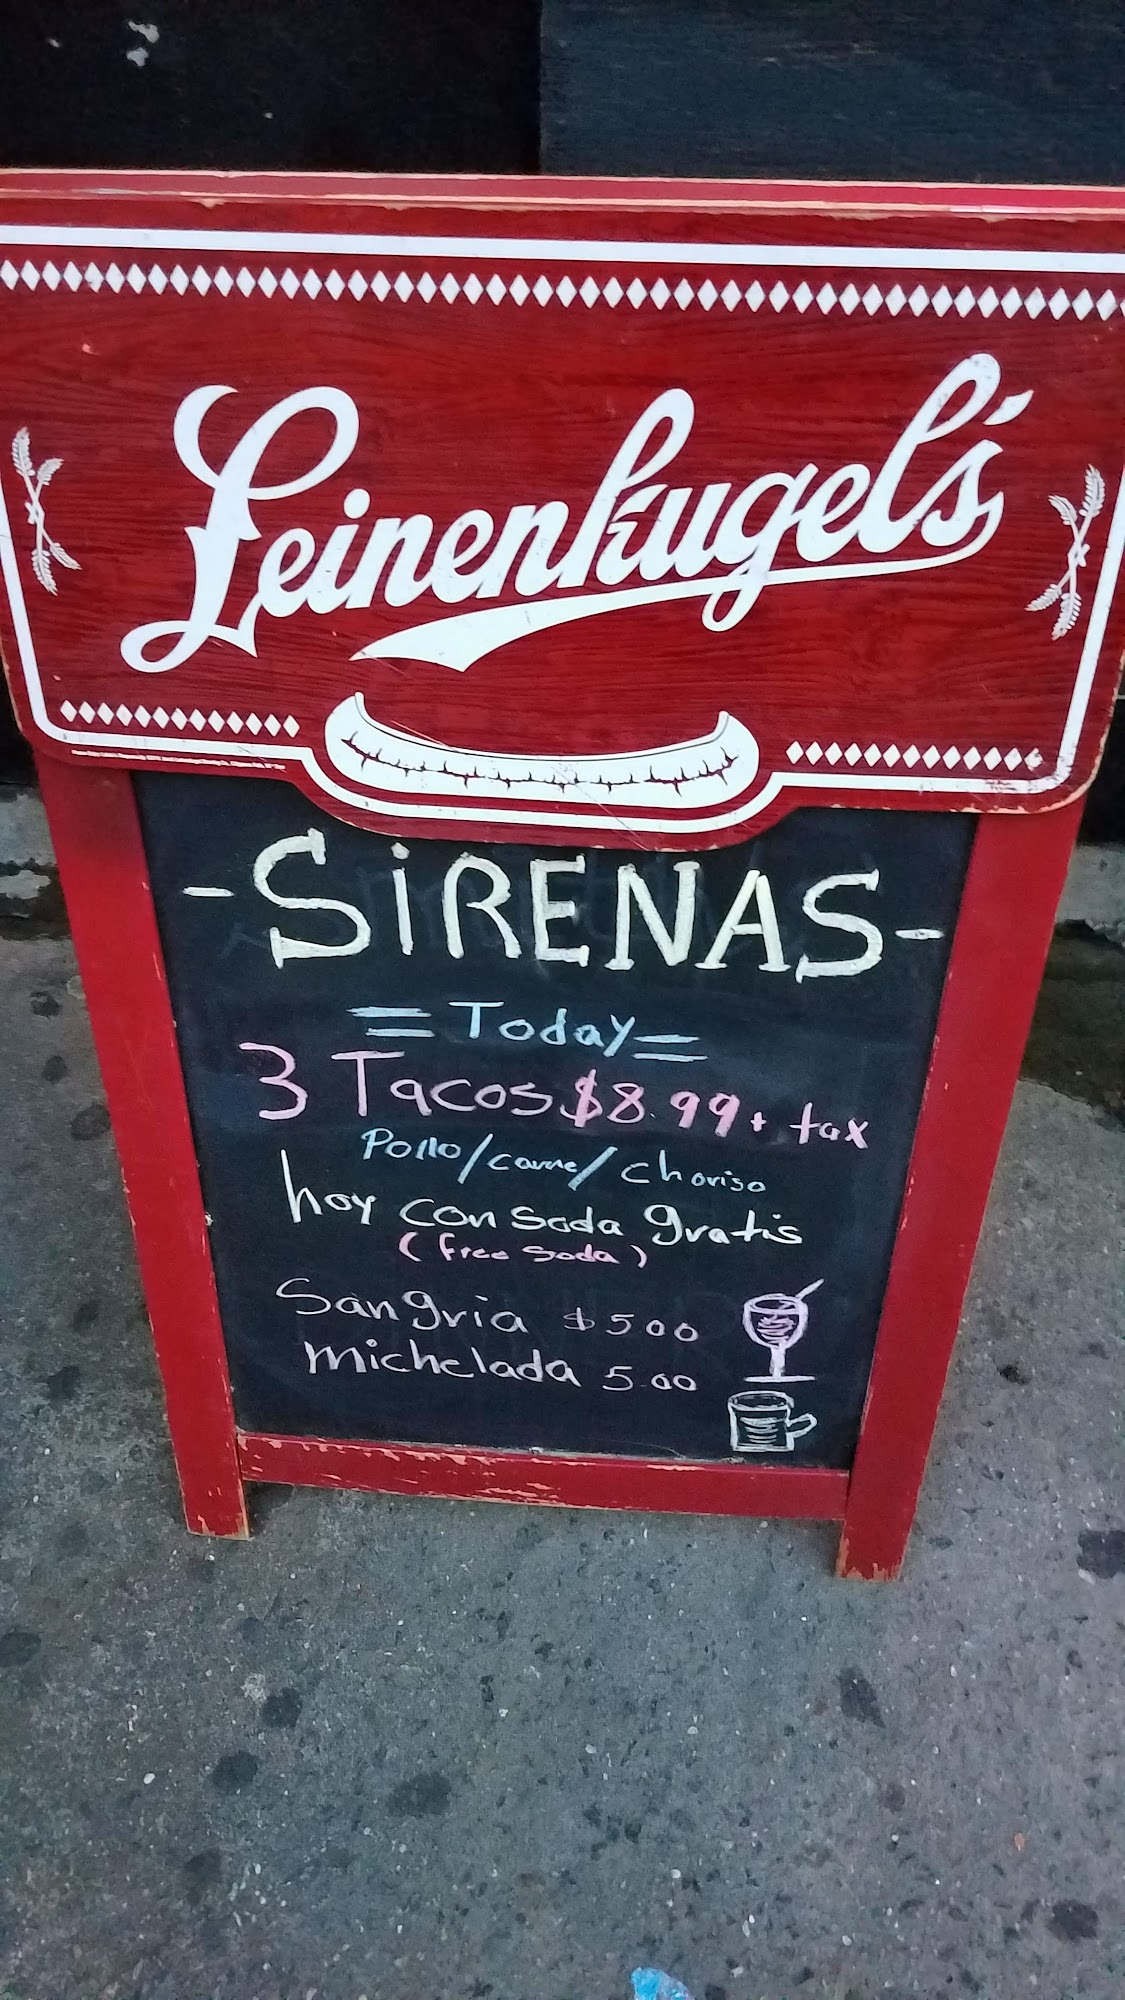 Leinenkugel's
-SiRENAS-
=Today=
3 Tacos $8.99 + tax
Pollo/carne/choriso
hoy con soda gratis
(free soda)
Sangria $5.00
Michelada 5.00